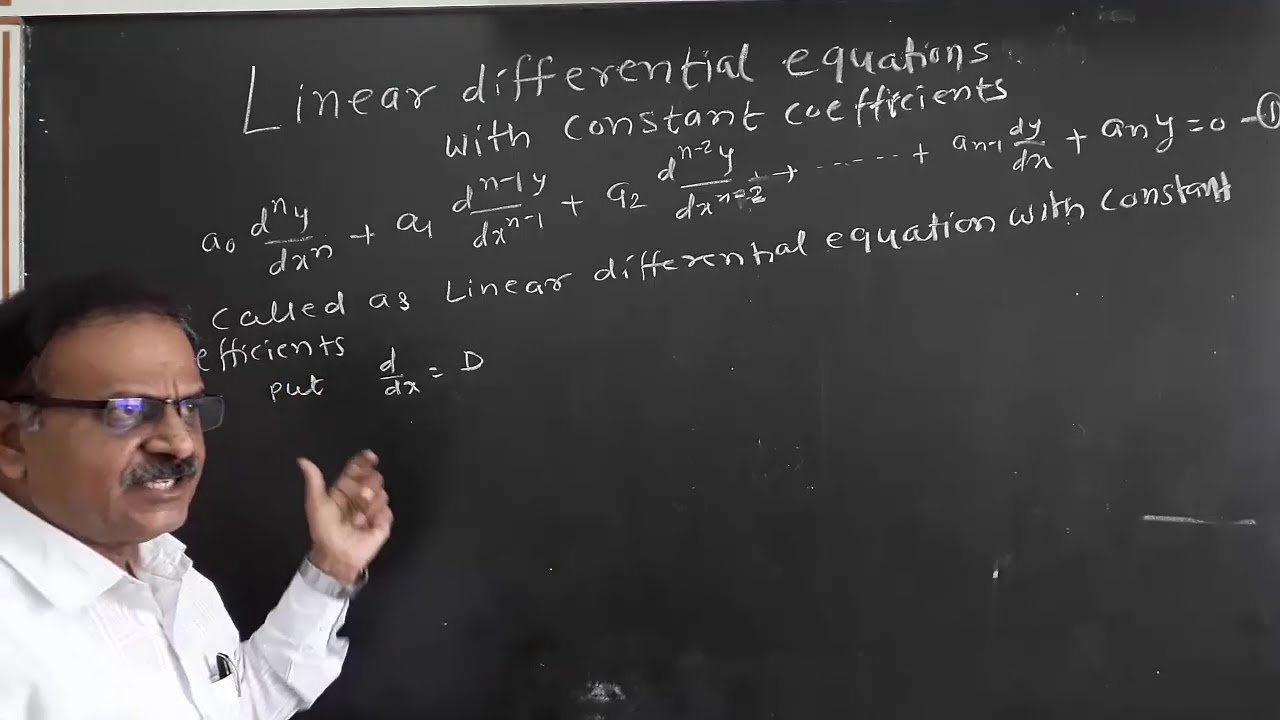 Linear differential equations
with constant coefficients
a₀ dⁿy/dxⁿ + a₁ dⁿ⁻¹y/dxⁿ⁻¹ + a₂ dⁿ⁻²y/dxⁿ⁻² + ------ + aₙ₋₁ dy/dx + aₙy = 0 - ①
called as Linear differential equation with constant
efficients
put d/dx = D